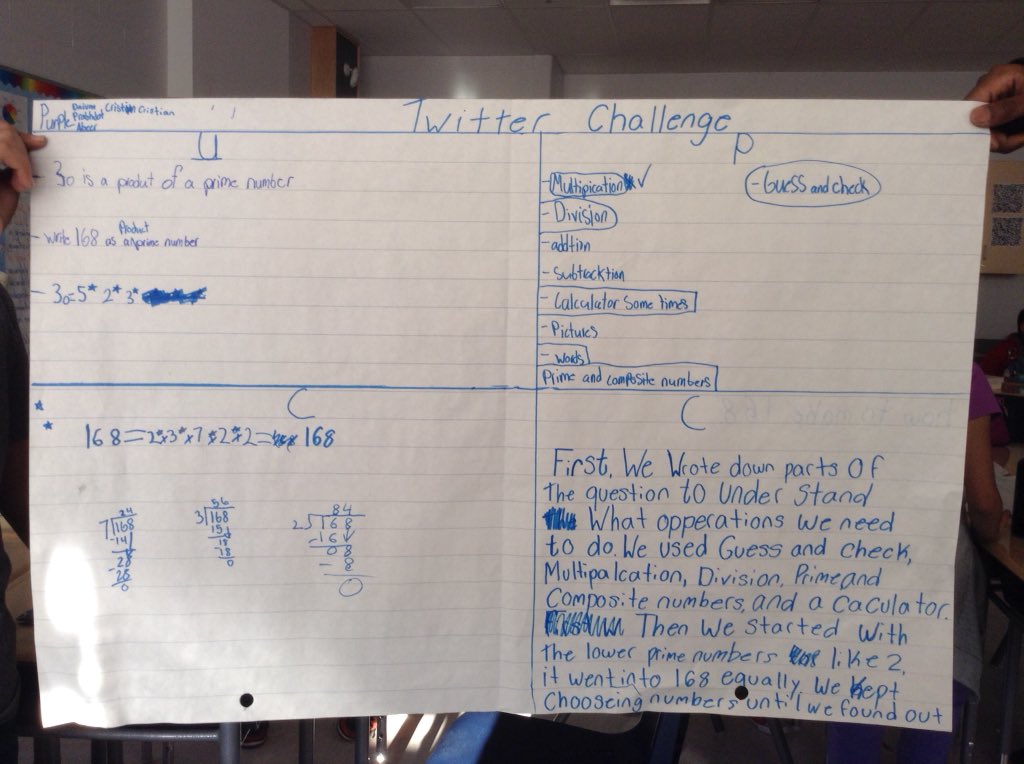 Purple Daivm Cristian Cristian
Prabhdot
Abeer
Twitter Challenge
U
- 30 is a produt of a prime number
- write 168 as a prime number
Product
- 30=5* 2* 3*
P
- Multipication ✓
- Division
- addtion
- Subtracktion
- Calculator Some times
- Pictures
- words
Prime and composite numbers
- Guess and check
C
168=2*×3*×7*2*2= 168
24
7)168
-14
28
-28
0
56
3)168
15
18
18
0
84
2)168
-16
08
- 8
0
C
First, We Wrote down parts Of
The question to Under Stand
What opperations we need
to do. We used Guess and check,
Multipalcation, Division, Prime and
Composite numbers, and a caculator.
Then We Started With
The lower prime numbers like 2,
it went into 168 equally. We kept
Chooseing numbers until we found out
how to make 168